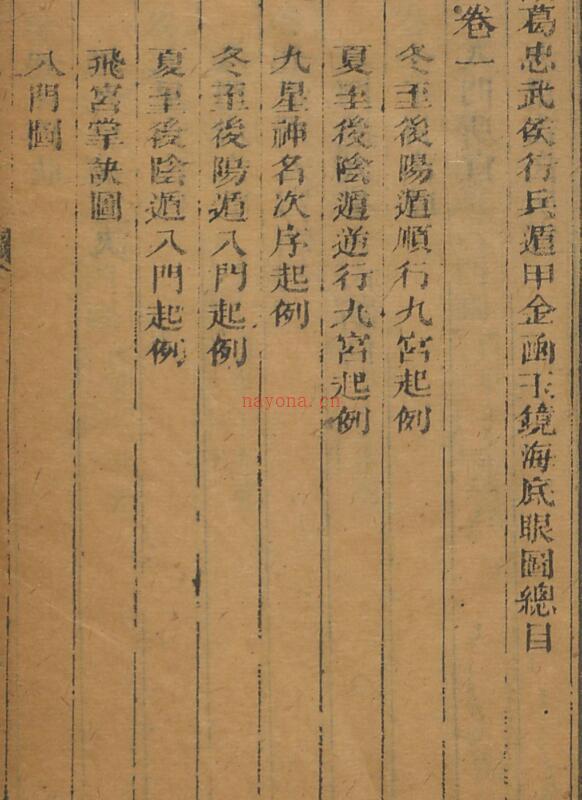 葛忠武侯行兵遁甲金函玉鏡海底眼圖總目
卷一
冬至後陽遁順行九宮起例
夏至後陰遁逆行九宮起例
九星神名次序起例
冬至後陽遁八門起例
夏至後陰遁八門起例
飛宮掌訣圖
八門圖
nayona.cn